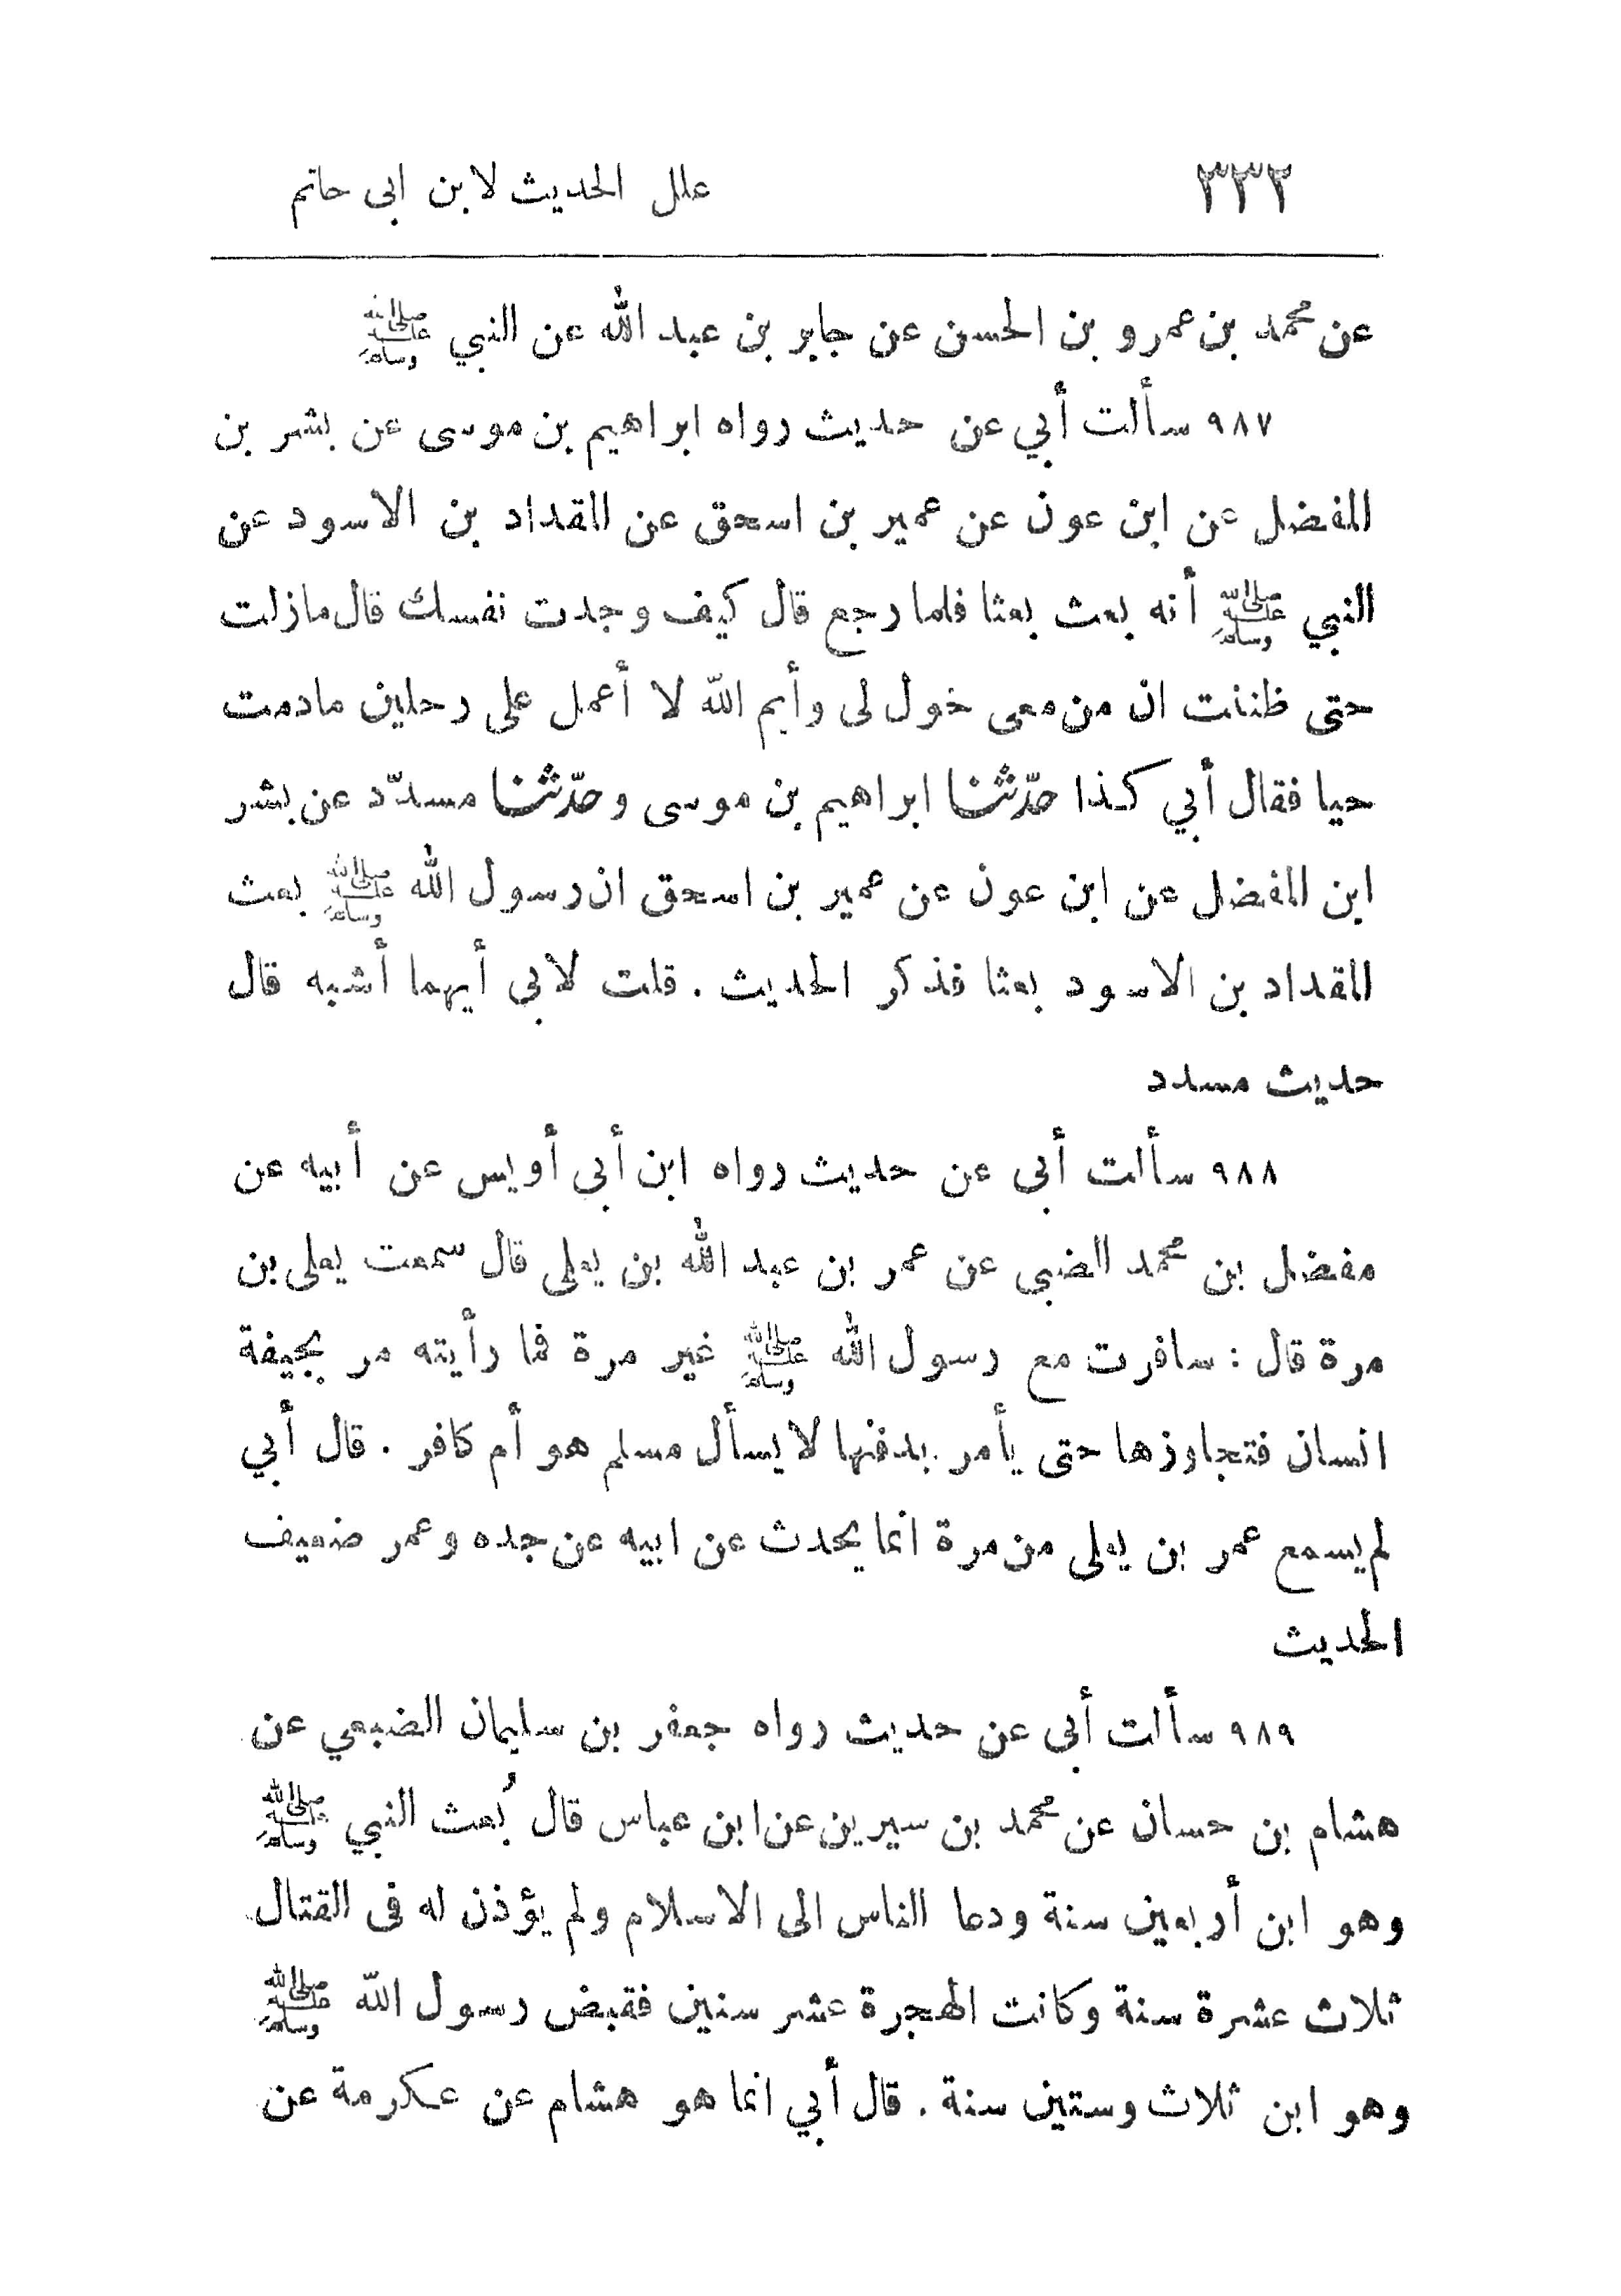 ٣٣٢ علل الحديث لابن ابى حاتم
عن محمد بن عمرو بن الحسن عن جابر بن عبد الله عن النبي ﷺ
٩٨٧ سألت أبي عن حديث رواه ابراهيم بن موسى عن بشر بن
المفضل عن ابن عون عن عمير بن اسحق عن المقداد بن الاسود عن
النبي ﷺ أنه بعث بعثا فلما رجع قال كيف وجدت نفسك قال مازلت
حتى ظننت ان من معى خول لى وأيم الله لا أعمل على رحلين مادمت
حيا فقال أبي كذا حدّثنا ابراهيم بن موسى وحدّثنا مسدّد عن بشر
ابن المفضل عن ابن عون عن عمير بن اسحق ان رسول الله ﷺ بعث
المقداد بن الاسود بعثا فذكر الحديث . قلت لابي أيهما أشبه قال
حديث مسدد
٩٨٨ سألت أبى عن حديث رواه ابن أبى أويس عن أبيه عن
مفضل بن محمد الضبى عن عمر بن عبد الله بن يعلى قال سمعت يعلى بن
مرة قال : سافرت مع رسول الله ﷺ غير مرة فما رأيته مر بجيفة
انسان فتجاوزها حتى يأمر بدفنها لا يسأل مسلم هو أم كافر . قال أبي
لم يسمع عمر بن يعلى من مرة انما يحدث عن ابيه عن جده وعمر ضعيف
الحديث
٩٨٩ سألت أبى عن حديث رواه جعفر بن سليمان الضبعي عن
هشام بن حسان عن محمد بن سيرين عن ابن عباس قال بُعث النبي ﷺ
وهو ابن أربعين سنة ودعا الناس الى الاسلام ولم يؤذن له فى القتال
ثلاث عشرة سنة وكانت الهجرة عشر سنين فقبض رسول الله ﷺ
وهو ابن ثلاث وستين سنة . قال أبي انما هو هشام عن عكرمة عن